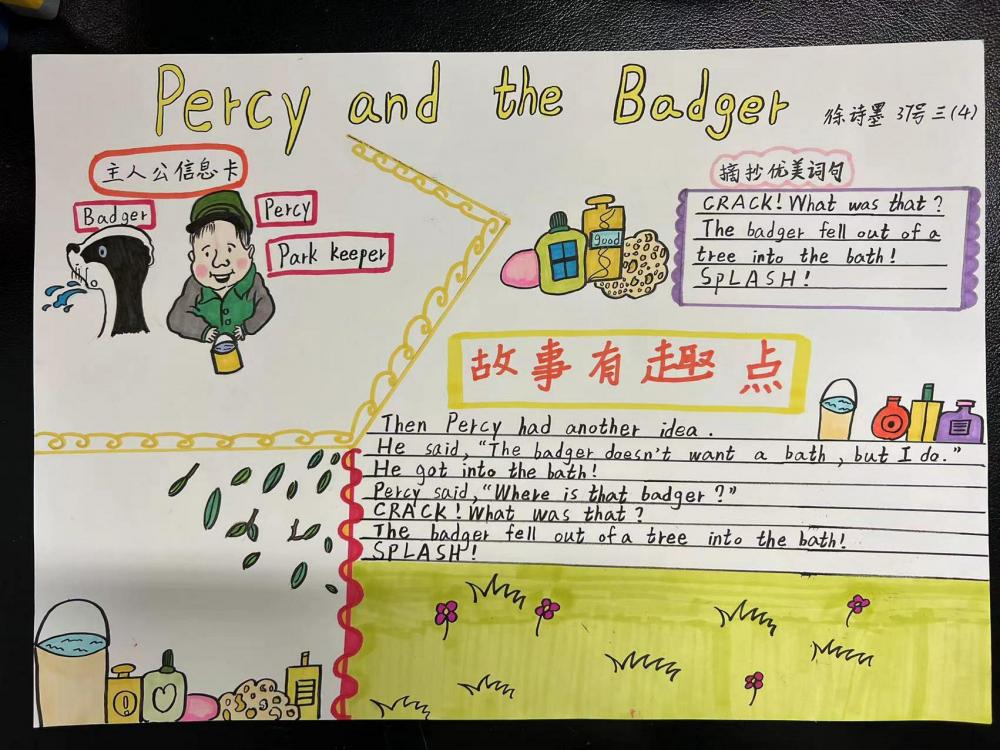 Percy and the Badger
徐诗墨 37号 三(4)
主人公信息卡
Badger
Percy
Park keeper
摘抄优美词句
CRACK! What was that?
The badger fell out of a
tree into the bath!
SpLASH!
good
故事有趣点
Then Percy had another idea.
He said, "The badger doesn't want a bath, but I do."
He got into the bath!
Percy said, "Where is that badger?"
CRACK! What was that?
The badger fell out of a tree into the bath!
SPLASH!